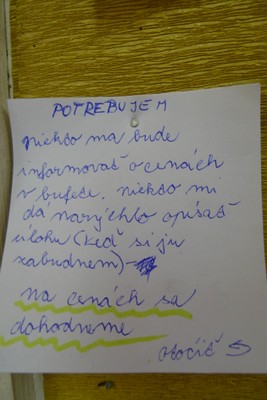 POTREBUJEM
niekto ma bude
informovať o cenách
v bufete. niekto mi
dá narýchlo opísať
úlohu (keď si ju
zabudnem)-
na cenách sa
dohodneme
otočiť